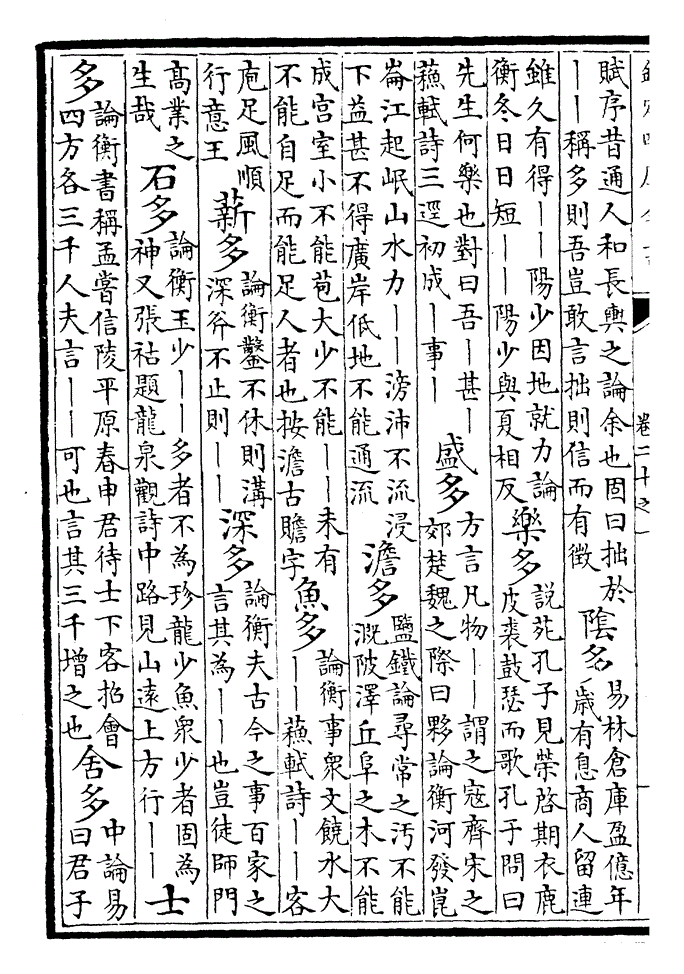 卷二十之一
賦序昔通人和長輿之論余也固曰拙於
——稱多則吾豈敢言拙則信而有徵
陰多
易林倉庫盈億年
歲有息商人留連
雖久有得——陽少因地就力論
衡冬日日短——陽少與夏相反
樂多
說苑孔子見榮啓期衣鹿
皮裘鼓瑟而歌孔子問曰
先生何樂也對曰吾—甚—
蘓軾詩三逕初成—事—
盛多
方言凡物——謂之寇齊宋之
郊楚魏之際曰夥論衡河發崑
崙江起岷山水力——滂沛不流浸
下益甚不得廣岸低地不能通流
澹多
鹽鐵論尋常之汚不能
溉陂澤丘阜之木不能
成宫室小不能苞大少不能——未有
不能自足而能足人者也按澹古贍字
魚多
論衡事衆文饒水大
——蘓軾詩——客
庖足風順
行意王
薪多
論衡鑿不休則溝
深斧不止則——
深多
論衡夫古今之事百家之
言其為——也豈徒師門
高業之
生哉
石多
論衡玉少——多者不為珍龍少魚衆少者固為
神又張祜題龍泉觀詩中路見山遠上方行——
士
多
論衡書稱孟嘗信陵平原春申君待士下客招會
四方各三千人夫言——可也言其三千增之也
舍多
中論易
曰君子